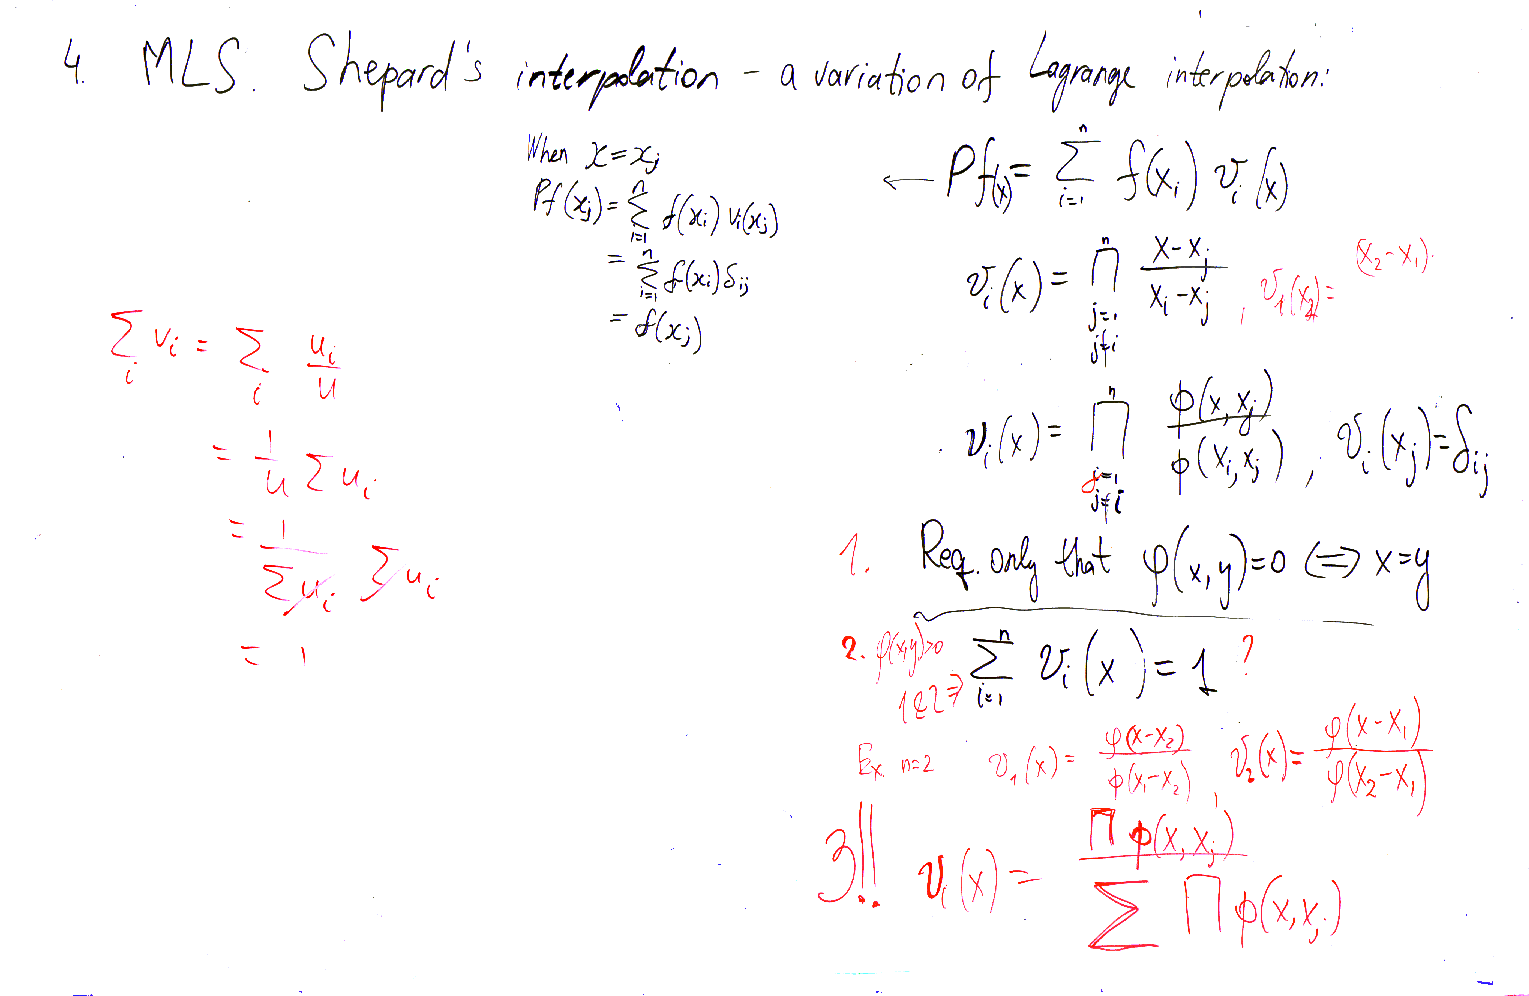 4. MLS. Shepard's interpolation - a variation of Lagrange interpolation:
When x = xj
Pf(xj) = ∑_{i=1}^{n} f(xi) vi(xj)
= ∑_{i=1}^{n} f(xi) δij
= f(xj)
← Pf(x) = ∑_{i=1}^{n} f(xi) vi(x)
vi(x) = ∏_{j=1, j≠i}^{n} (x-xj)/(xi-xj) , v1(x2) = (x2-x1).
vi(x) = ∏_{j=1, j≠i}^{n} φ(x,xj)/φ(xi,xj) , vi(xj) = δij
1. Req. only that φ(x,y)=0 ⟺ x=y
2. φ(x,y)>0
1&2 ⇒ ∑_{i=1}^{n} vi(x) = 1 ?
Ex n=2 v1(x) = φ(x-x2)/φ(x1-x2) , v2(x) = φ(x-x1)/φ(x2-x1)
3!! vi(x) = ∏ φ(x,xj) / ∑ ∏ φ(x,xj)
∑_i vi = ∑_i ui/u
= 1/u ∑ ui
= 1/∑ui ∑ ui
= 1